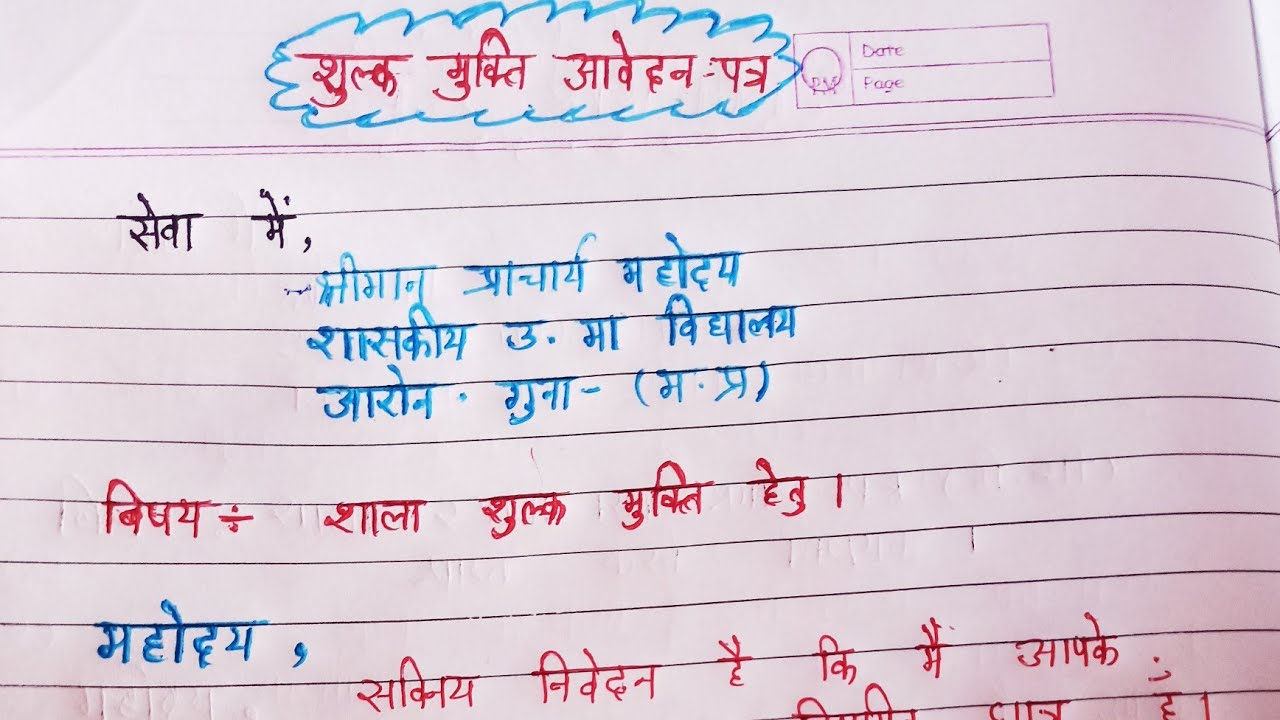 शुल्क मुक्ति आवेदन-पत्र
Date
Page
सेवा में,
श्रीमान् प्राचार्य महोदय
शासकीय उ. मा विद्यालय
आरोन. गुना- (म.प्र)
विषय ÷ शाला शुल्क मुक्ति हेतु।
महोदय,
सविनय निवेदन है कि मैं आपके
छात्र हूँ।